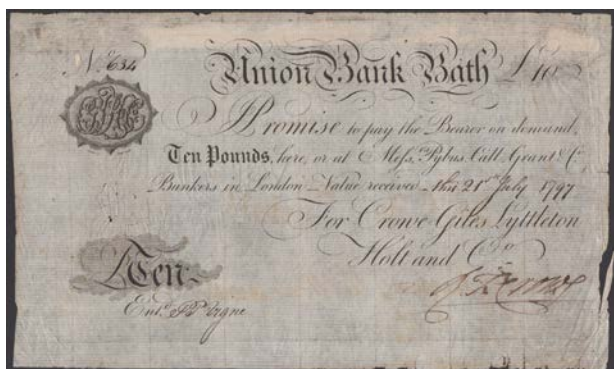 No. 634 Union Bank Bath £10
I Promise to pay the Bearer on demand,
Ten Pounds, here, or at Messrs. Pybus, Call, Grant & Co.
Bankers in London Value received this 21st July 1797
For Crowe Giles Lyttleton
Holt and Co.
£Ten
Entd.